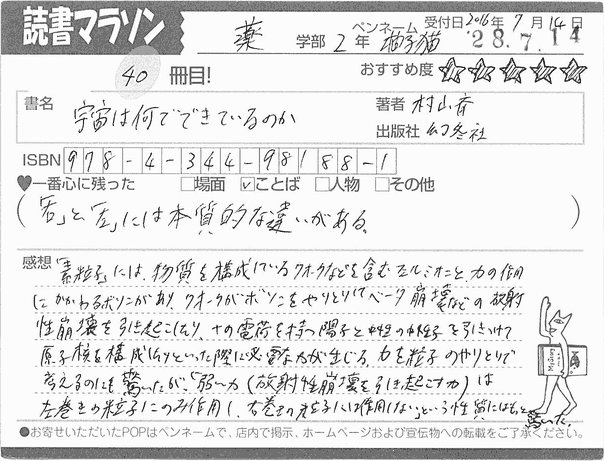 読書マラソン
薬 学部 2 年 ペンネーム 柚子猫 受付日 2016年 7 月 14 日
28.7.14
40 冊目!
おすすめ度
書名 宇宙は何でできているのか
著者 村山斉
出版社 幻冬社
ISBN 978-4-344-98188-1
♥一番心に残った □場面 ☑ことば □人物 □その他
(「右」と「左」には本質的な違いがある。)
感想 「素粒子」には、物質を構成しているクオークなどを含むフェルミオンと、力の作用
にかかわるボソンがあり、クオークがボソンをやりとりしてベータ崩壊などの放射
性崩壊を引き起こしたり、+の電荷を持つ陽子と中性の中性子を引きつけて
原子核を構成したりといった際に必要な力が生じる。力を粒子のやりとりで
考えるのにも驚いたが、「弱い力(放射性崩壊を引き起こす力)は
左巻きの粒子にのみ作用し、右巻きの粒子には作用しない」という性質にはもっと
驚いた。
●お寄せいただいたPOPはペンネームで、店内で掲示、ホームページおよび宣伝物への転載をご了承ください。